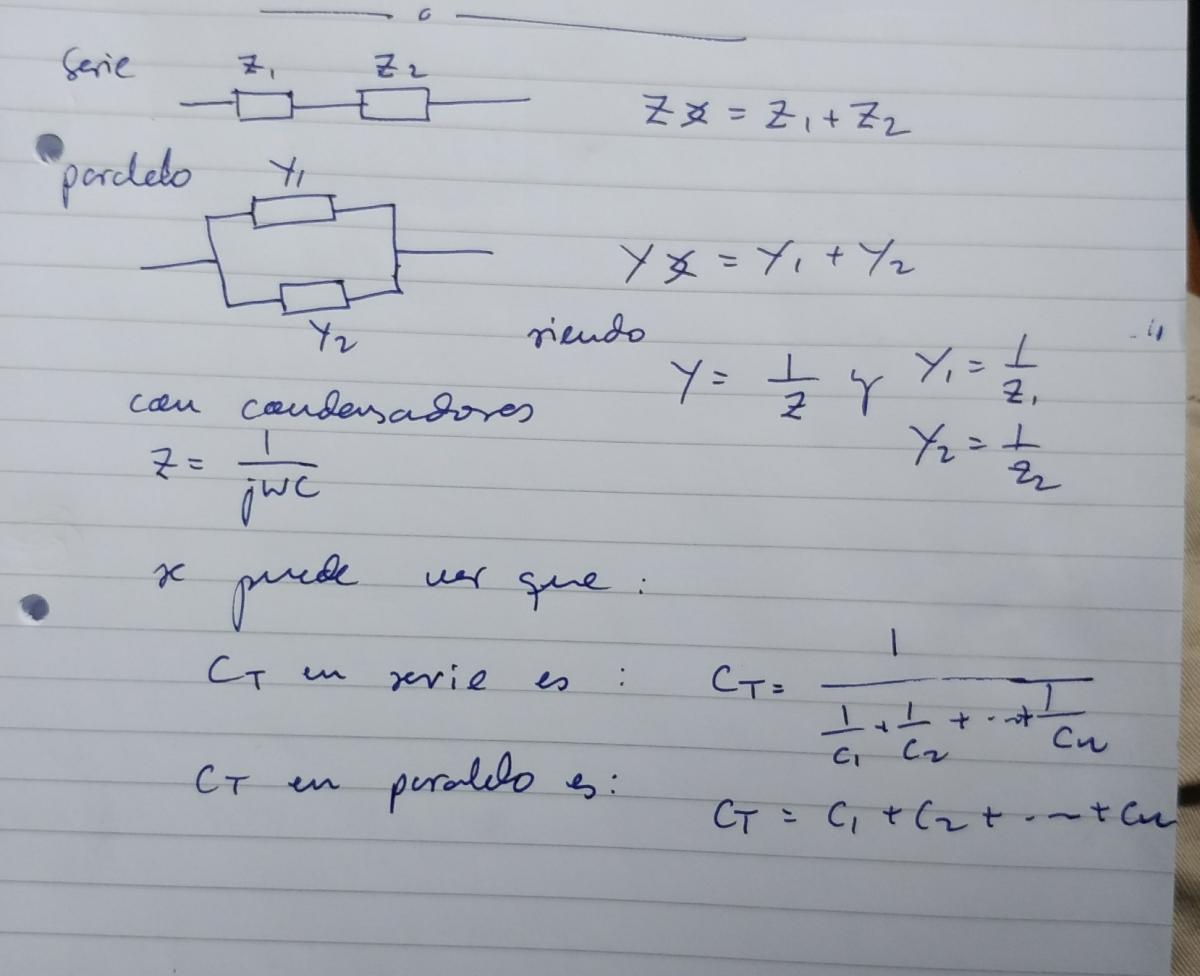 Serie Z1 Z2
Z = Z1 + Z2
paralelo Y1
Y = Y1 + Y2
Y2
siendo
Y = 1/Z y Y1 = 1/Z1
Y2 = 1/Z2
con condensadores
Z = 1/jWC
se puede ver que :
CT en serie es : CT = 1/(1/C1 + 1/C2 + ... + 1/Cn)
CT en paralelo es :
CT = C1 + C2 + ... + Cn